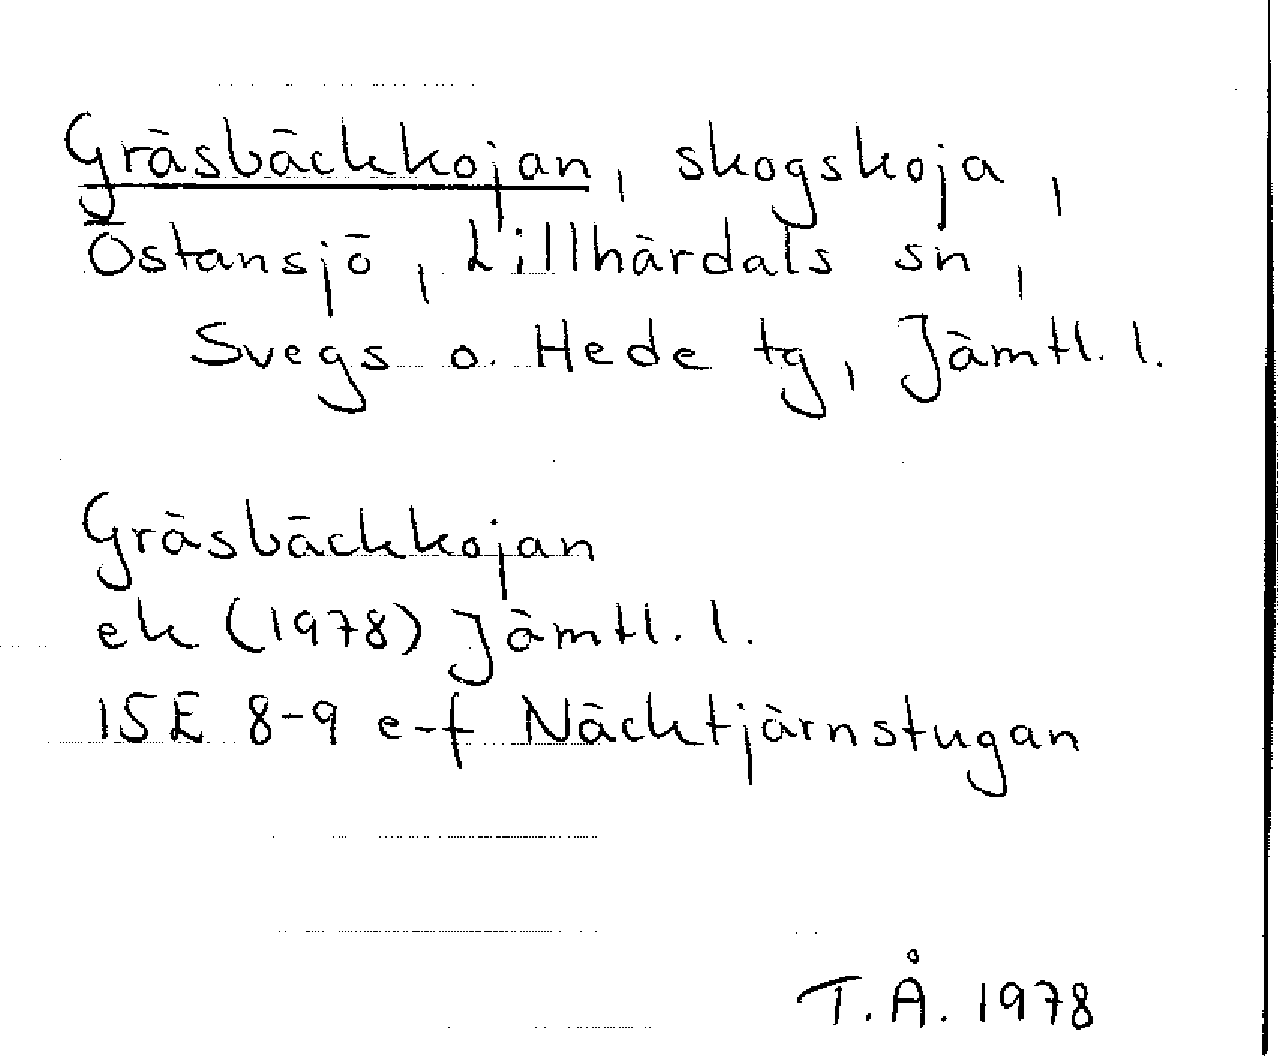 Gräsbäckkojan, skogskoja,
Östansjö, Lillhärdals sn,
Svegs o. Hede tg, Jämtl. l.
Gräsbäckkojan
ek (1978) Jämtl. l.
15E 8-9 e-f Näcktjärnstugan
T.Å. 1978